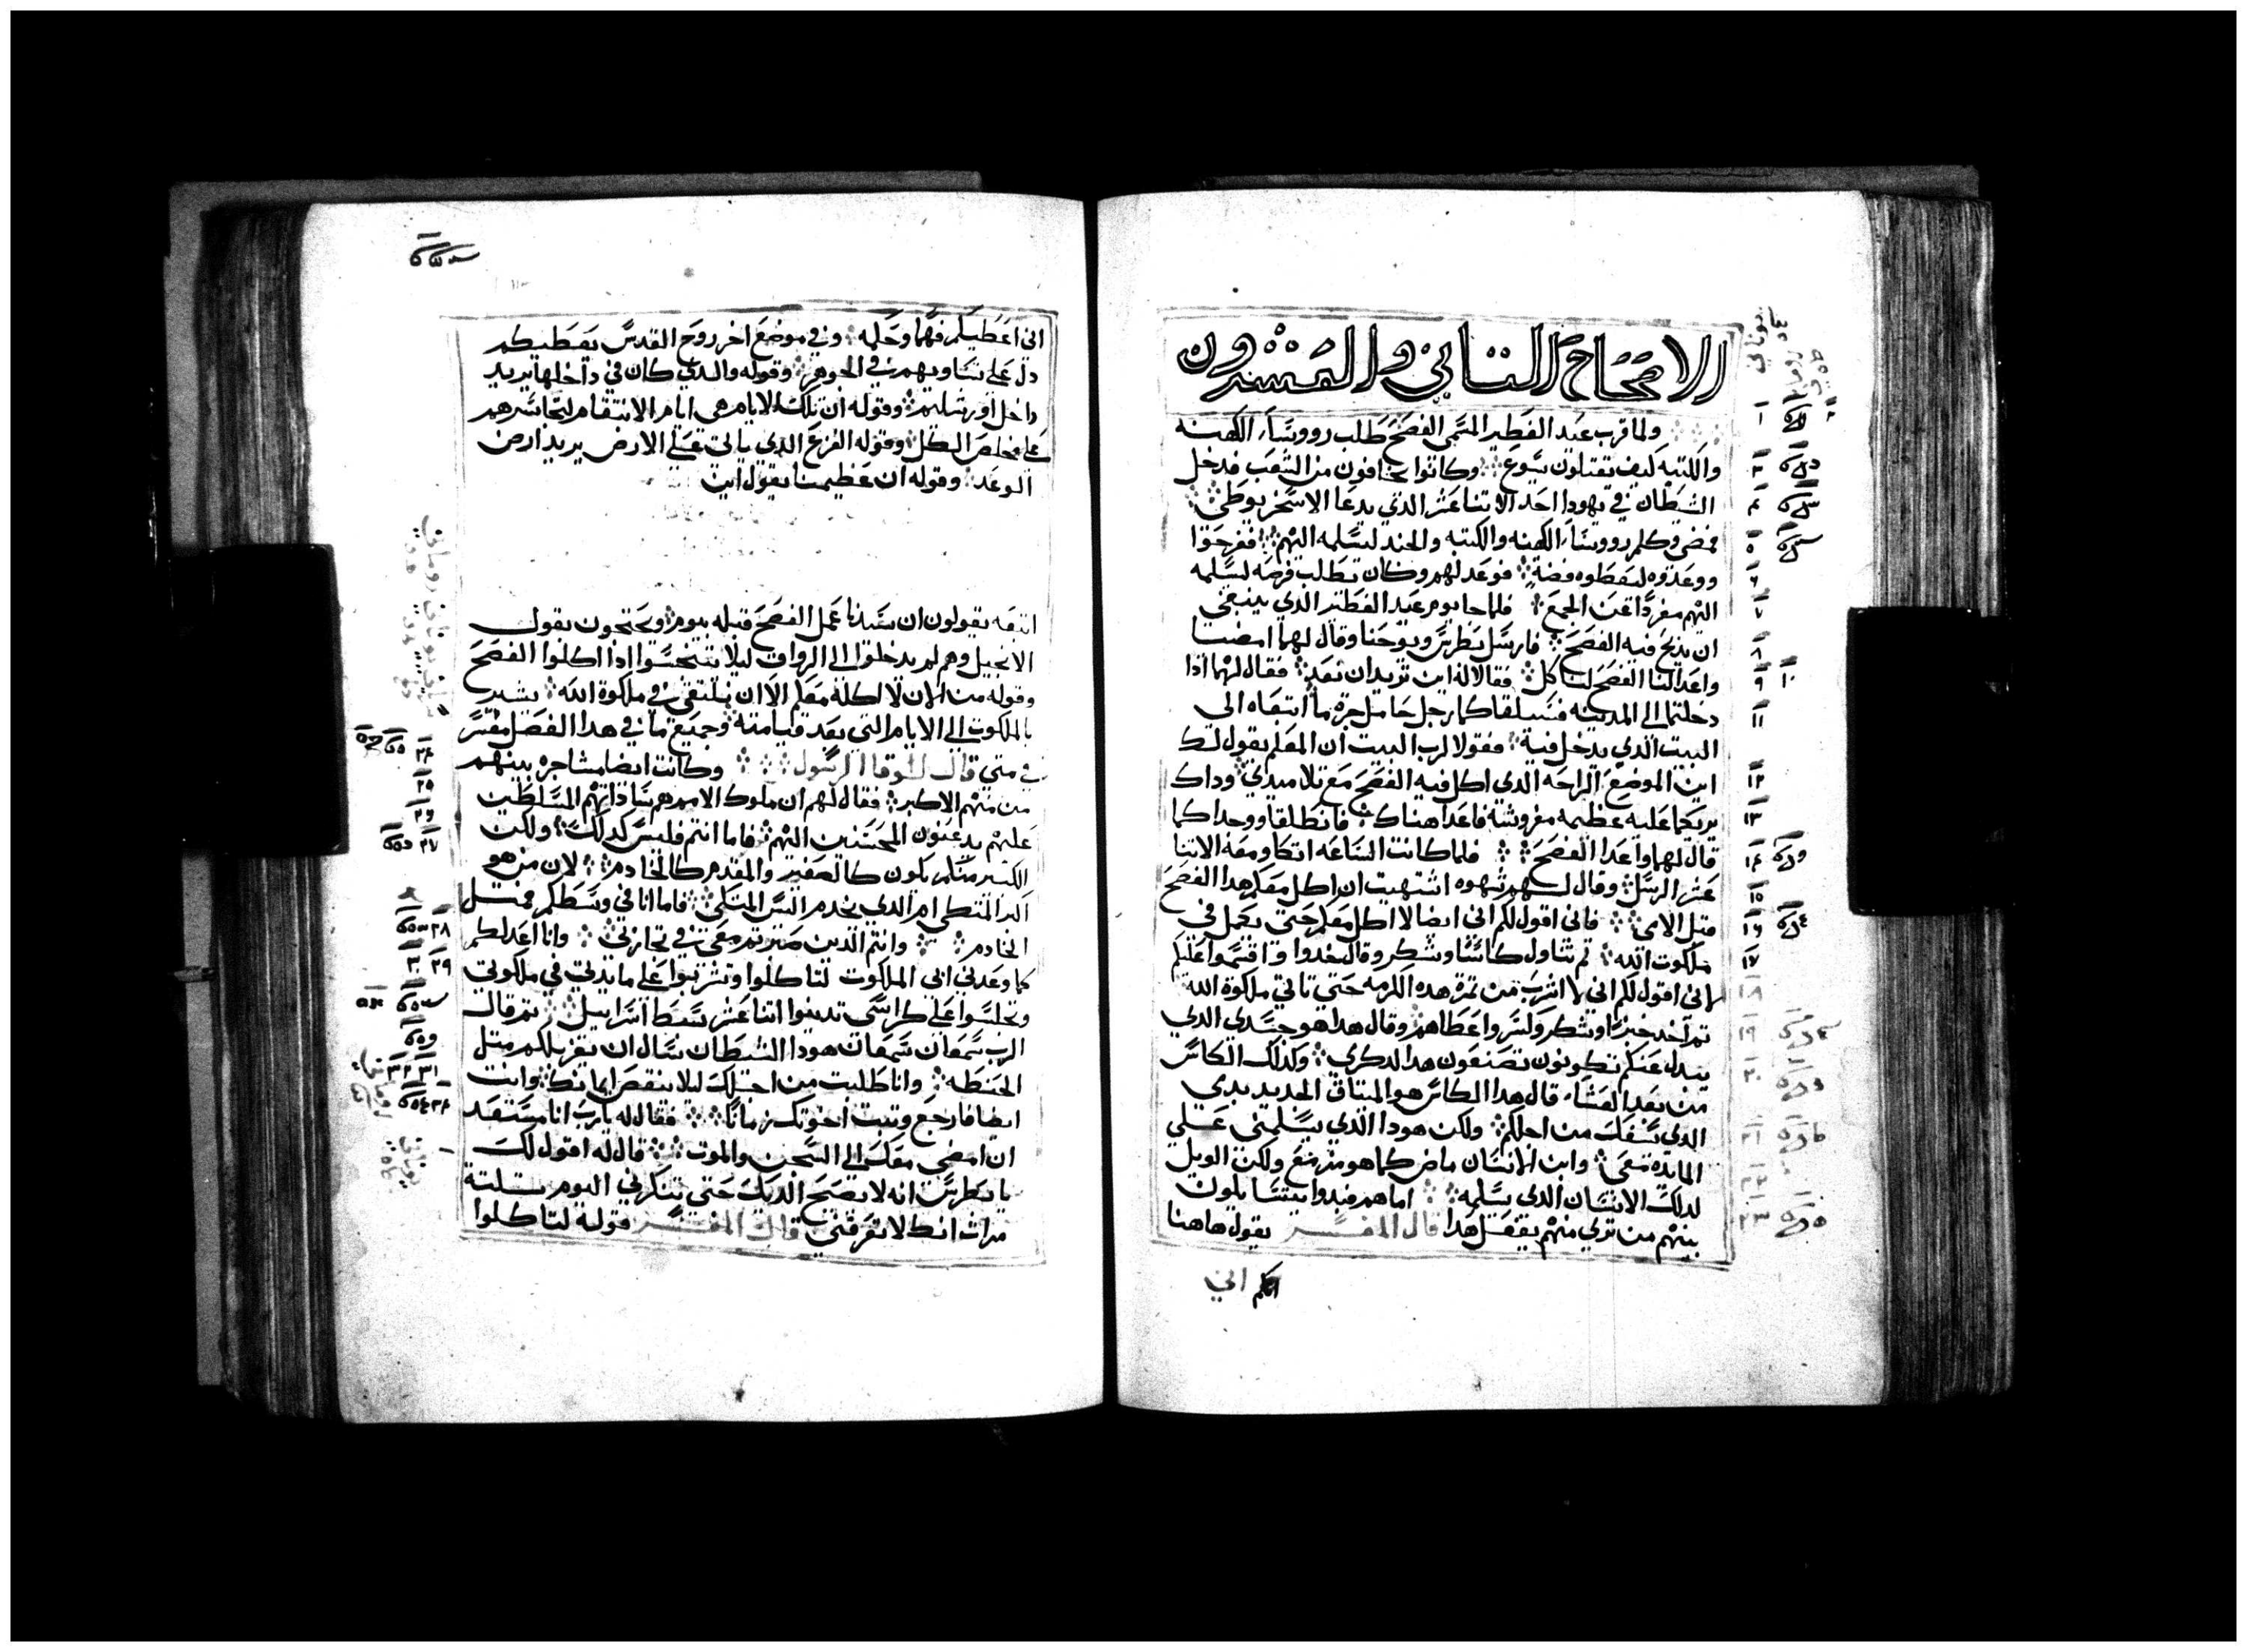 الاصحاح التاني والعشرون
ولما قرب عيد الفطير المسمى الفصح طلب رووسا الكهنه
والكتبه كيف يقتلون يسوع وكانوا يخافون من الشعب فدخل
الشيطان في يهودا احد الاتنا عشر الدي يدعا الاسخريوطي
فمضى وكلم رووسا الكهنه والكتبه والجند ليسلمه اليهم ففرحوا
ووعدوه ليعطوه فضة فوعد لهم وكان يطلب فرصه ليسلمه
اليهم مفردا عن الجمع فلما جا يوم عيد الفطير الدي ينبغي
ان يدبح فيه الفصح فارسل بطرس ويوحنا وقال لهما امضيا
واعدا لنا الفصح لناكل فقالا له اين تريد ان نعد فقال لهما ادا
دخلتما الى المدينه فسيلقاكما رجل حامل جرة ما اتبعاه الى
البيت الدي يدخل فية فقولا لرب البيت ان المعلم يقول لك
اين الموضع الراحه الدى اكل فيه الفصح مع تلاميدي وداك
يريكما عليه عظيمه مفروشة فاعدا هناك فانطلقا ووجدا كما
قال لهما واعدا الفصح فلما كانت الساعه اتكا ومعه الاتنا
عشر الرسل وقال لهم شهوه اشتهيت ان اكل معكم هدا الفصح
قبل الامي فاني اقول لكم اني ايضا لا اكل معكم حتى يكمل في
ملكوت الله تم تناول كاسًا وشكر وقال خدوا واقتسموا عليكم
اني اقول لكم اني لا اشرب من تمرة هده الكرمه حتي تاتي ملكوة الله
تم اخد خبزا وشكر وكسر واعطاهم وقال هدا هو جسدي الدي
يبدل عنكم تكونون تصنعون هدا لدكري وكدلك الكاس
من بعد العشا قال هدا الكاس هو الميتاق الجديد بدمي
الدي يسفك من اجلكم ولكن هودا الدي يسلمني على
المايده معى وابن الانسان ماض كما هو مزمع ولكن الويل
لدلك الانسان الدى يسلمه اما هم فبدوا يتسايلون
بينهم من تري منهم يفعل هدا قال المفسر يقول هاهنا
اني
اني اعطيكم فهما وحكمه وفي موضع اخر روح القدس يعطيكم
دل على تساويهم في الجوهر وقوله والدي كان في داخلها يريد
داخل اورشليم وقوله ان تلك الايام هى ايام الانتقام لتجاسرهم
على مخلص الكل وقوله الفزع الدي ياتى على الارض يريد ارض
الوعد وقوله ان عظيمًا يقول ابن
انفه يقولون ان سيدنا عمل الفصح قبله بيوم ويحتجون بقول
الانجيل وهم لم يدخلوا الى الرواق ليلا يتنجسوا ادا اكلوا الفصح
وقوله من الان لا اكلة معكم الا ان نلتقى في ملكوة الله يشير
بالملكوت الى الايام التى بعد قيامته وجميع ما في هدا الفصل مفسر
في متي قال لوقا الرسول وكانت ايضا مشاجره بينهم
من منهم الاكبر فقال لهم ان ملوك الامم هم ساداتهم المسلطين
عليهم يدعون المحسنين اليهم فاما انتم فليس كدلك ولكن
الكبير منكم يكون كالصغير والمقدم كالخادم لان من هو
اكبر المتكى ام الدي يخدم اليس المتكى فاما انا في وسطكم فمتل
الخادم وانتم الدين صبرتم معى في تجاربي وانا اعد لكم
كما وعدني ابى الملكوت لتاكلوا وتشربوا على مايدتى في ملكوتي
وتجلسوا على كراسى تدينوا اتنا عشر سبط اسراييل تم قال
الرب سمعان سمعان هودا الشيطان سال ان يغربلكم متل
الحنطه وانا طلبت من اجلك ليلا ينقص ايمانك وانت
ايضا فارجع وتبت اخوتك زمانًا فقال له يارب انا مستعد
ان امضي معك الى السجن والموت قال له اقول لك
يا بطرس انه لا يصيح الديك حتى تنكرني اليوم تلتة
مرات انك لا تعرفني قال المفسر قولة لتاكلوا